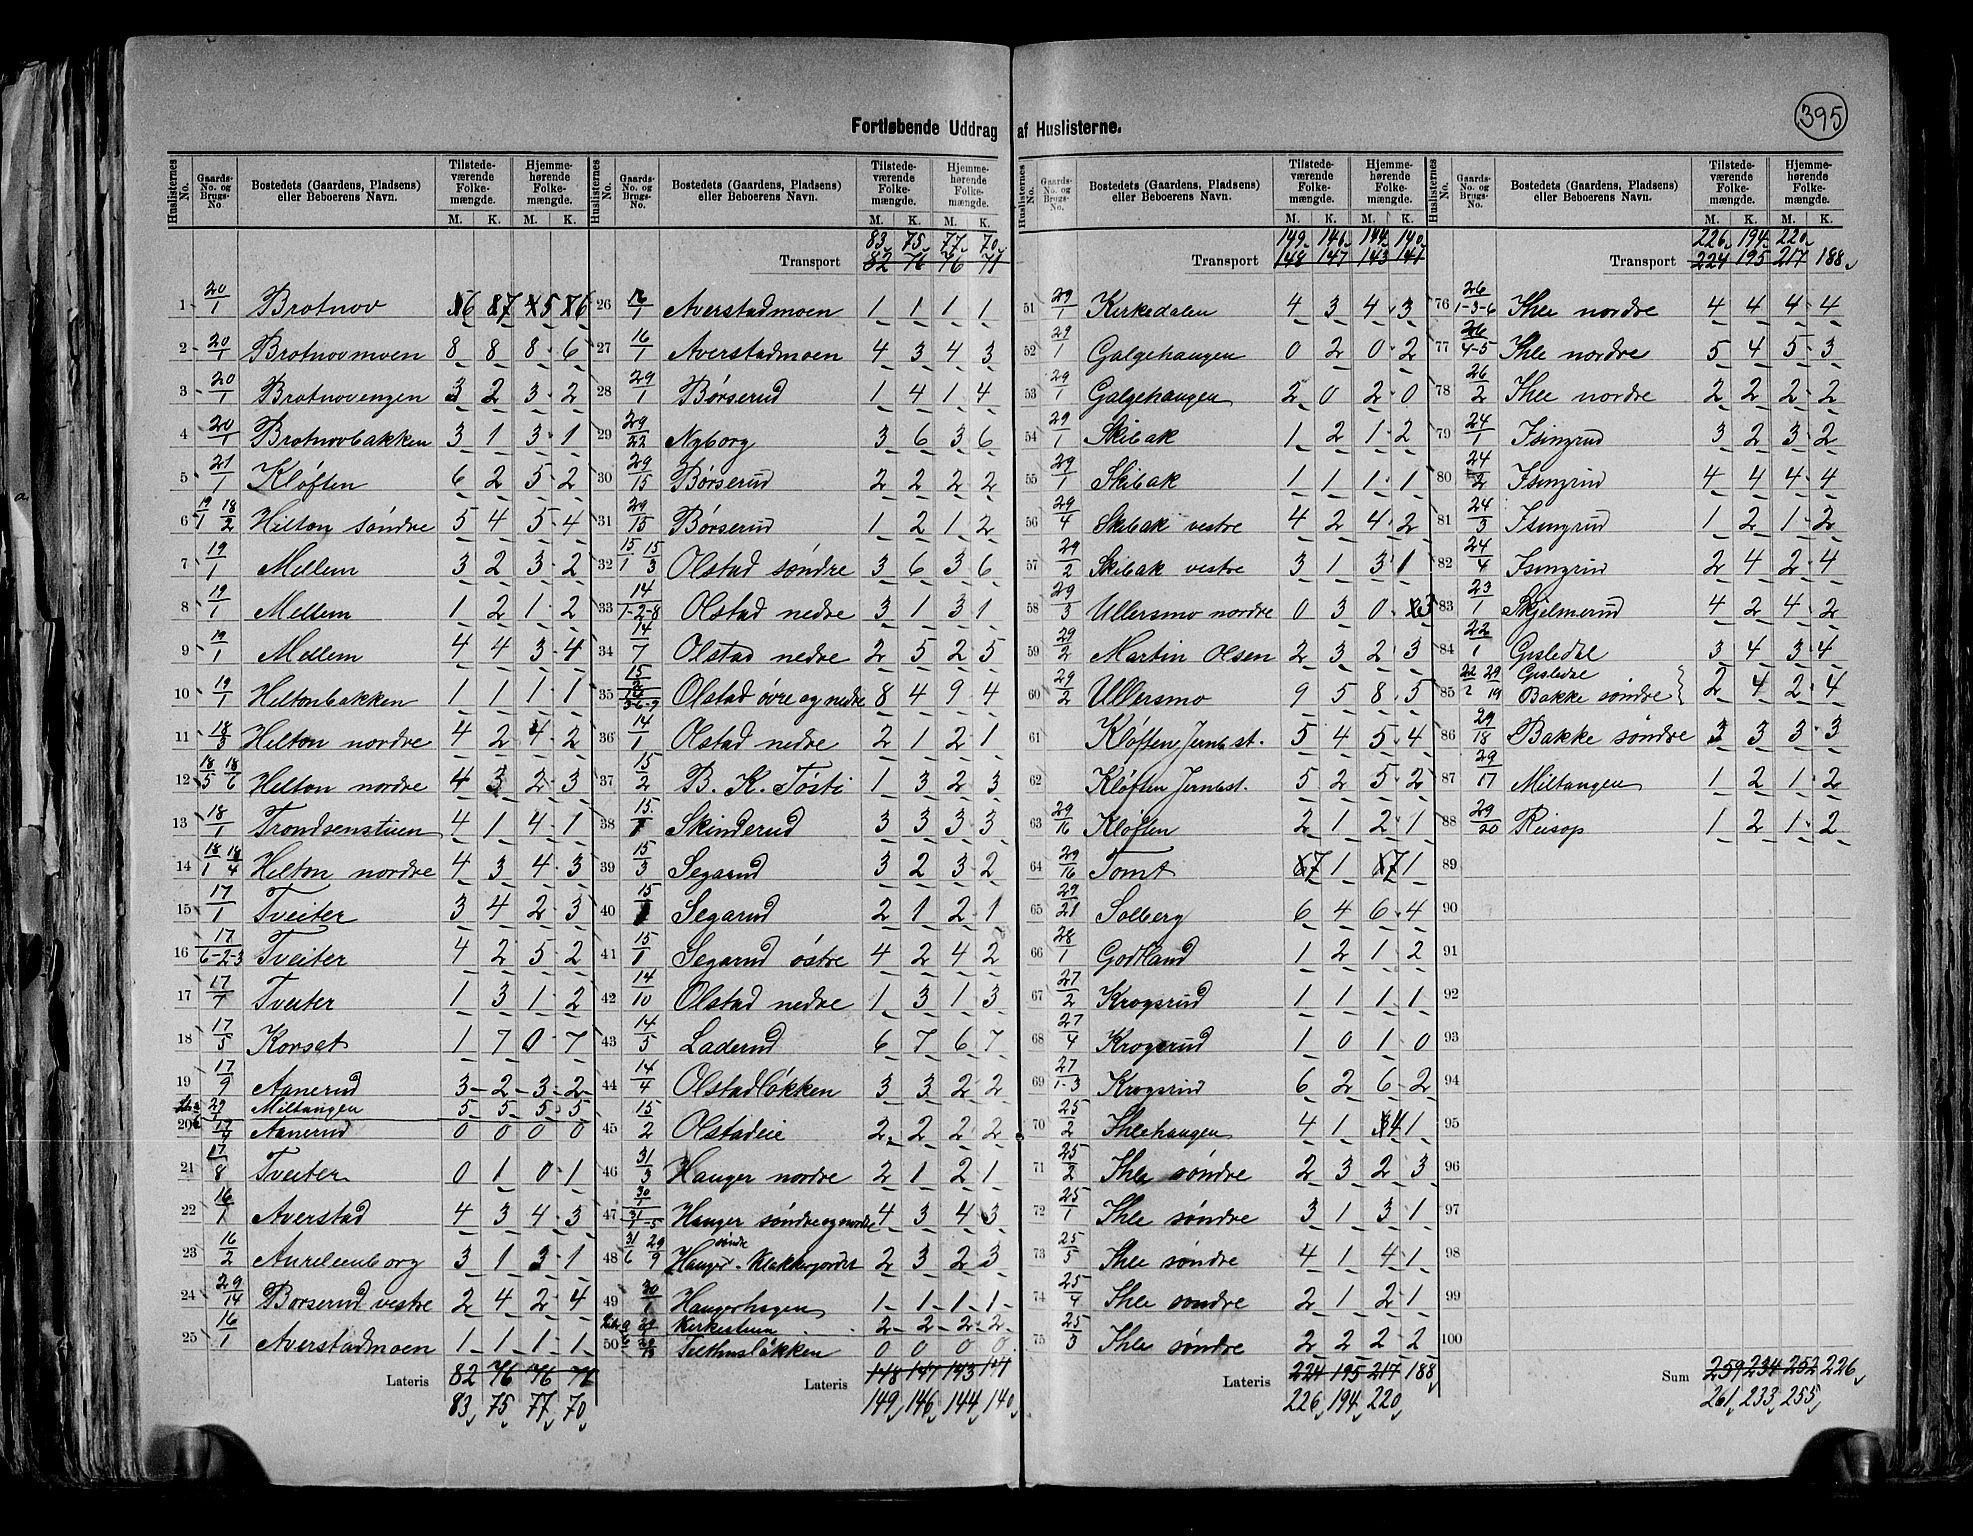 395
Fortløbende Uddrag af Huslisterne.
Huslisternes No. | Gaards-No. og Brugs-No | Bostedets (Gaardens, Pladsens) eller Beboerens Navn. | Tilstedeværende Folkemængde. M. K. | Hjemmehørende Folkemængde. M. K.
1 20/1 Brotnov 6 7 5 6
2 20/1 Brotnovmoen 8 8 8 6
3 20/1 Brotnovengen 3 2 3 2
4 20/1 Brotnovbakken 3 1 3 1
5 21/1 Kløften 6 2 5 2
6 19/1 18/2 Hilton søndre 5 4 5 4
7 19/1 Mellem 3 2 3 2
8 19/1 Mellem 1 2 1 2
9 19/1 Mellem 4 4 3 4
10 19/1 Hiltonbakken 1 1 1 1
11 18/3 Hilton nordre 4 2 4 2
12 18/5 18/6 Hilton nordre 4 3 2 3
13 18/1 Trondsenstuen 4 1 4 1
14 18/1 18/4 Hilton nordre 4 3 4 3
15 17/1 Tveiter 3 4 2 3
16 17/6-2-3 Tveiter 4 2 5 2
17 17/7 Tveiter 1 3 1 2
18 17/5 Korset 1 7 0 7
19 17/9 Aanerud 3 2 3 2
29/1 Miltangen 5 5 5 5
20 17/4 Aanerud 0 0 0 0
21 17/8 Tveiter 0 1 0 1
22 16/1 Averstad 4 3 4 3
23 16/2 Aurelienborg 3 1 3 1
24 29/14 Børserud vestre 2 4 2 4
25 16/1 Averstadmoen 1 1 1 1
Lateris 82 76 76 71
83 75 77 70
83 75 77 70
Transport 82 76 76 71
26 16/1 Averstadmoen 1 1 1 1
27 16/1 Averstadmoen 4 3 4 3
28 29/1 Børserud 1 4 1 4
29 29/22 Nyborg 3 6 3 6
30 29/15 Børserud 2 2 2 2
31 29/15 Børserud 1 2 1 2
32 15/1 15/3 Olstad søndre 3 6 3 6
33 14/1-2-8 Olstad nedre 3 1 3 1
34 14/7 Olstad nedre 2 5 2 5
35 Olstad øvre og nedre 8 4 9 4
36 14/1 Olstad nedre 2 1 2 1
37 15/2 B. K. Tøsti 1 3 2 3
38 15/1 Skinderud 3 3 3 3
39 15/3 Segarud 3 2 3 2
40 15 Segarud 2 1 2 1
41 15/1 Segarud østre 4 2 4 2
42 14/10 Olstad nedre 1 3 1 3
43 14/5 Laderud 6 7 6 7
44 14/4 Olstadløkken 3 3 2 2
45 15/2 Olstadeie 2 2 2 2
46 31/3 Hanger nordre 2 1 2 1
47 30/1 31/1-5 Hanger søndre og nordre 4 3 4 3
48 31/6 29/9 Hanger søndre Klakkerjordet 2 3 2 3
49 30/1 Hangerhagen 1 1 1 1
Kirkestuen 2 2 2 2
50 29/13 Telthusløkken 0 0 0 0
Lateris 148 147 143 141
149 146 144 140
149 146 144 140
Transport 148 147 143 141
51 29/1 Kirkedalen 4 3 4 3
52 29/1 Galgehaugen 0 2 0 2
53 29/1 Galgehaugen 2 0 2 0
54 29/1 Skibak 1 2 1 2
55 29/1 Skibak 1 1 1 1
56 29/4 Skibak vestre 4 2 4 2
57 29/2 Skibak vestre 3 1 3 1
58 29/3 Ullersmo nordre 0 3 0 3
59 29/2 Martin Olsen 2 3 2 3
60 29/2 Ullersmo 9 5 8 5
61 Kløften Jernbst. 5 4 5 4
62 Kløften Jernbst. 5 2 5 2
63 29/16 Kløften 2 1 2 1
64 29/16 Tomt 7 1 7 1
65 29/21 Solberg 6 4 6 4
66 28/1 Godtland 1 2 1 2
67 27/2 Krogsrud 1 1 1 1
68 27/4 Krogsrud 1 0 1 0
69 27/1-3 Krogsrud 6 2 6 2
70 25/2 Ihlehaugen 4 1 4 1
71 25/2 Ihle søndre 2 3 2 3
72 25/1 Ihle søndre 3 1 3 1
73 25/5 Ihle søndre 4 1 4 1
74 25/4 Ihle søndre 2 1 2 1
75 25/3 Ihle søndre 2 2 2 2
Lateris 224 195 217 188
226 194 220
226 194 220
Transport 224 195 217 188
76 26/1-3-6 Ihle nordre 4 4 4 4
77 26/4-5 Ihle nordre 5 4 5 3
78 26/2 Ihle nordre 2 2 2 2
79 24/1 Isingrud 3 2 3 2
80 24/2 Isingrud 4 4 4 4
81 24/3 Isingrud 1 2 1 2
82 24/4 Isingrud 2 4 2 4
83 23/1 Skjelmerud 4 2 4 2
84 22/1 Gisledal 3 4 3 4
85 22/2 29/19 Gisledal Bakke søndre 2 4 2 4
86 29/18 Bakke søndre 3 3 3 3
87 29/17 Miltangen 1 2 1 2
88 29/20 Reisop 1 2 1 2
89
90
91
92
93
94
95
96
97
98
99
100
Sum 259 234 252 226
261 233 255